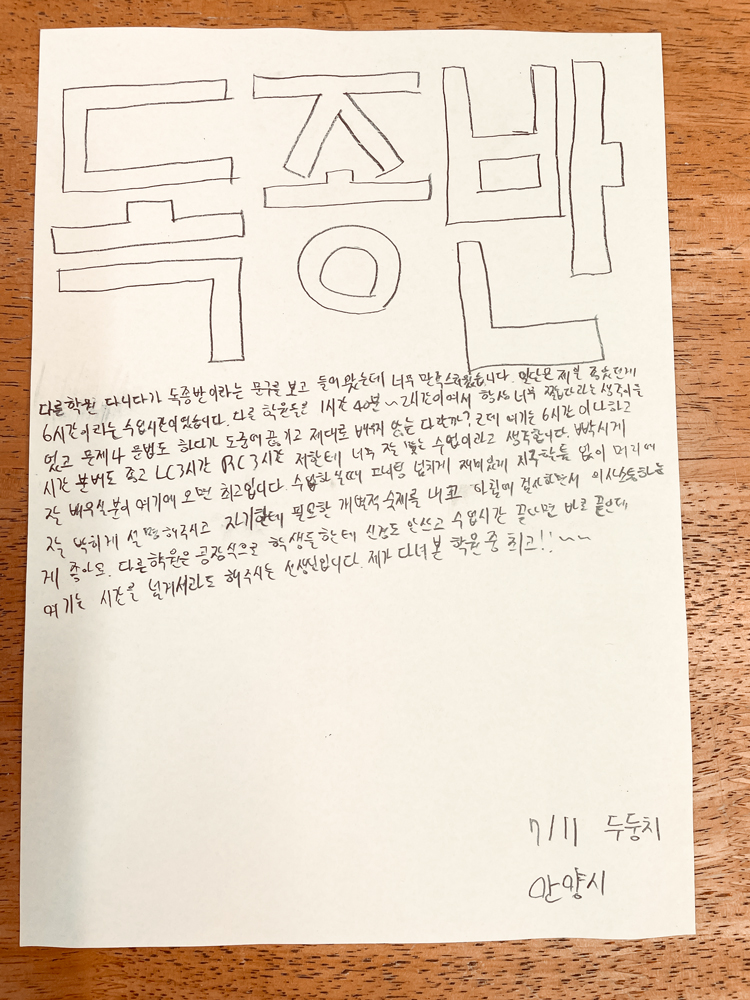 독종반
다른학원 다니다가 독종반이라는 문구를 보고 들어왔는데 너무 만족스러웠습니다. 일단은 제일 좋았던게
6시간이라는 수업시간이었습니다. 다른 학원들은 1시간 40분~2시간이여서 항상 너무 짧다라는 생각이들
었고 문제나 문법도 하다가 도중에 끊기고 제대로 배우지 않는 다랄까? 근데 여기는 6시간 이나하고
시간 분배도 좋고 LC3시간 RC3시간 저한테 너무 잘 맞는 수업이라고 생각합니다. 빡시게
잘 배우실분이 여기에 오면 최고입니다. 수업하실때 프니팅 넘치게 재미있게 지루함틈 없이 머리에
잘 박히게 설명해주시고 자기한테 필요한 개인적숙제를 내고 아침에 검사하면서 의사소통하는
게 좋아요. 다른학원은 공장식으로 학생들한테 신경도 안쓰고 수업시간 끝나면 바로 끝인데
여기는 시간을 넘겨서라도 해주시는 선생님입니다. 제가 다녀본 학원 중 최고!! ~~
7/11 두둥치
안양시